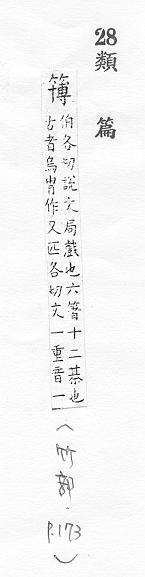 28類篇
簙伯各切說文局戲也六箸十二棊也
古者烏胄作又匹各切文一重音一
(竹部.P.173)